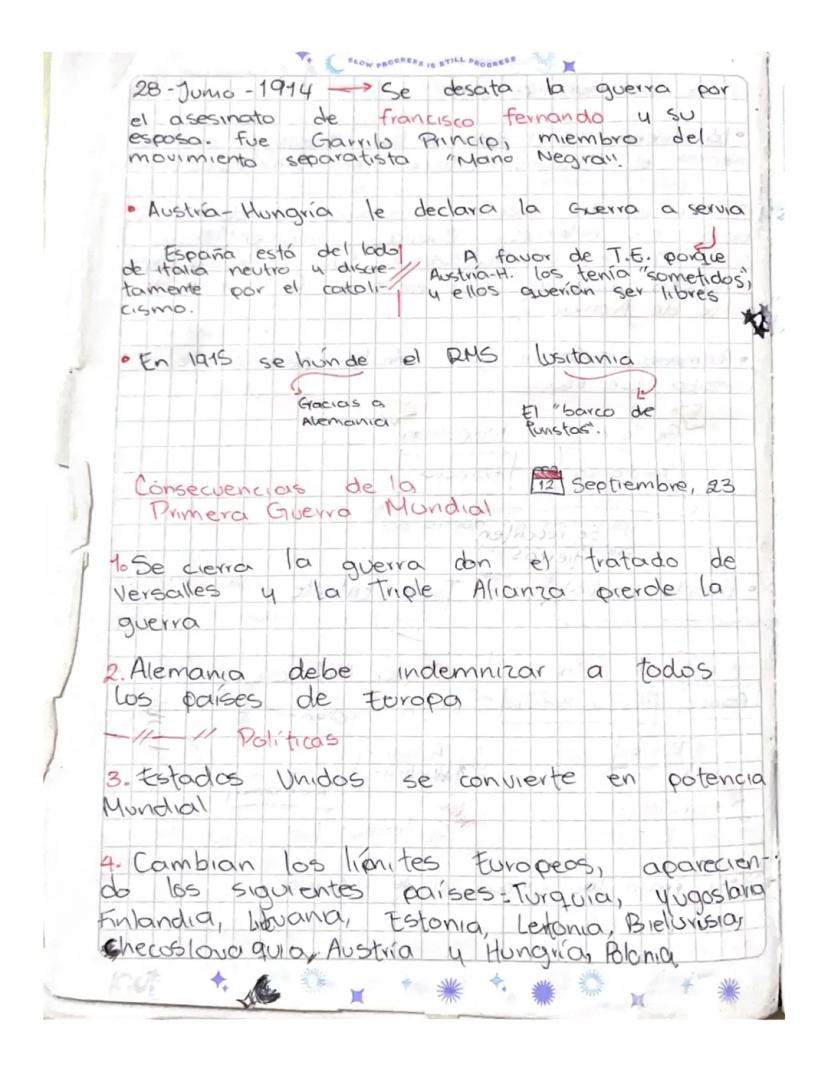 SLOW PROGRESS IS STILL PROGRESS
28-Junio-1914 → Se desata la guerra por
el asesinato de francisco fernando y su
esposa. fue Garrilo Princip, miembro del
movimiento separatista "Mano Negra".
• Austría-Hungría le declara la Guerra a servia
España está del lado
de italia neutro y discre-
tamente por el catoli-
cismo.
A favor de T.E. porque
Austria-H. los tenía "sometidos",
y ellos querían ser libres
• En 1915 se húnde el RMS lusitania
Gracias a
Alemania
El "barco de
Turistas".
Consecuencias de la
Primera Guerra Mundial
12 Septiembre, 23
1. Se cierra la guerra con el tratado de
Versalles y la Triple Alianza pierde la
guerra
2. Alemania debe indemnizar a todos
los países de Europa
—//— // Políticas
3. Estados Unidos se convierte en potencia
Mundial
4. Cambian los límites Europeos, aparecien-
do los siguientes países: Turquía, Yugoslavia
Finlandia, Lituana, Estonia, Letonia, Bielurisia,
Checoslovaquia, Austría y Hungría, Polonia